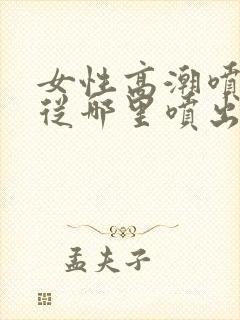 女性高潮噴
從哪里噴出
孟夫子